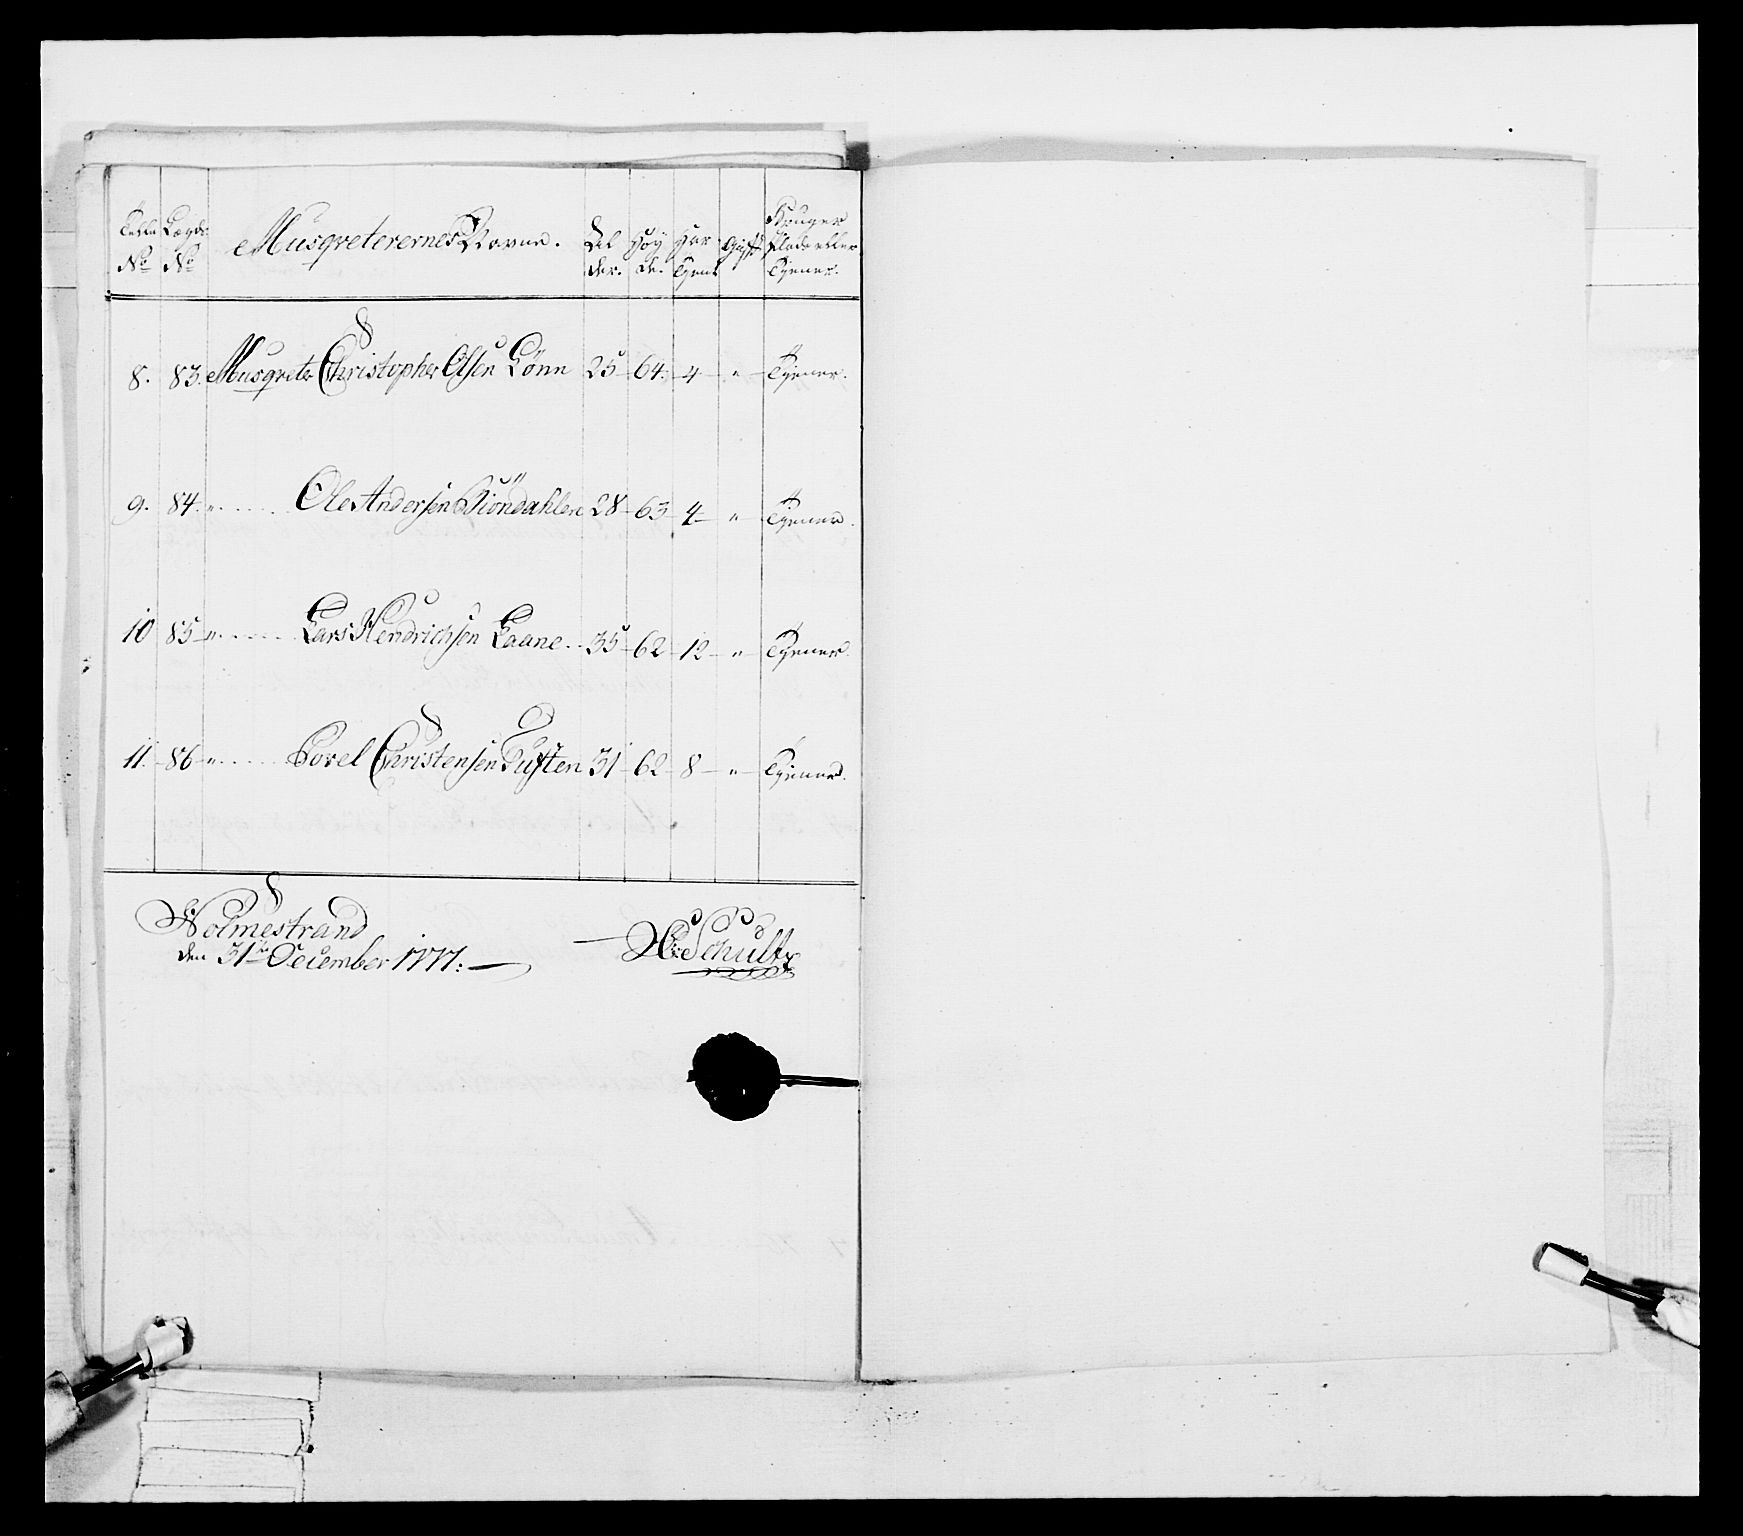 Telle No
Lægds No
Musqveterernes Navne.
Al der.
Høy de.
Har Tient
Gift
Bruger Plads eller Tiener.
8. 83. Musqvete Christopher Olsen Lönn 25 64. 4 " Tiener.
9. 84. " Ole Andersen Siöndahlen 28 63 4 " Tiener.
10 85 " Lars Hendrichsen Laane 35 62 12 " Tiener.
11. 86 " Povel Christensen Tuften 31 62 8 " Tiener.
Holmestrand
den 31te December 1777.
Schultz